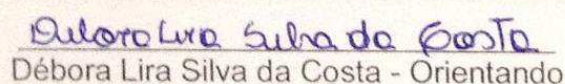 Debora Lira Silva da Costa
Débora Lira Silva da Costa - Orientando